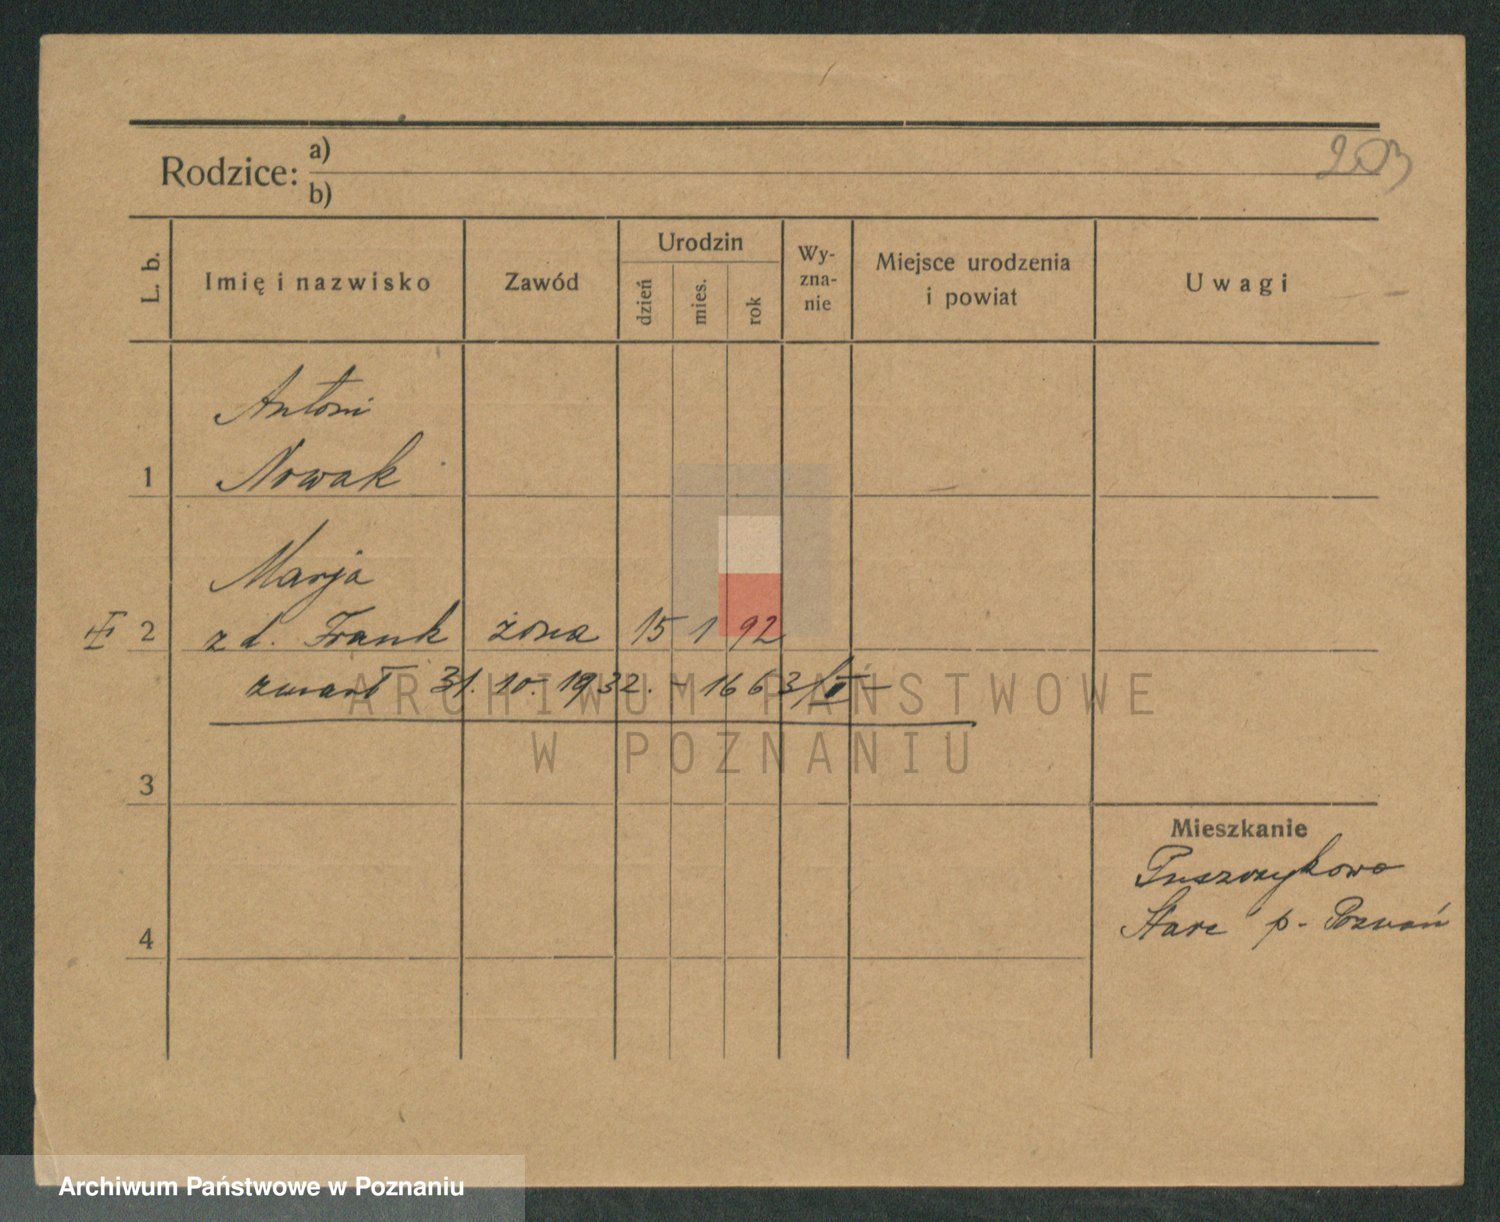 203
Rodzice: a)
b)
L. b.
Imię i nazwisko
Zawód
Urodzin
dzień
mies.
rok
Wy-
zna-
nie
Miejsce urodzenia
i powiat
Uwagi
Antoni
1 Nowak
Marja
III 2 z d. Frank żona 15 1 92
zmarł 31. 10. 1932. - 1663/II -
3
4
Mieszkanie
Puszczykowo
Stare p. Poznań
ARCHIWUM PAŃSTWOWE
W POZNANIU
Archiwum Państwowe w Poznaniu